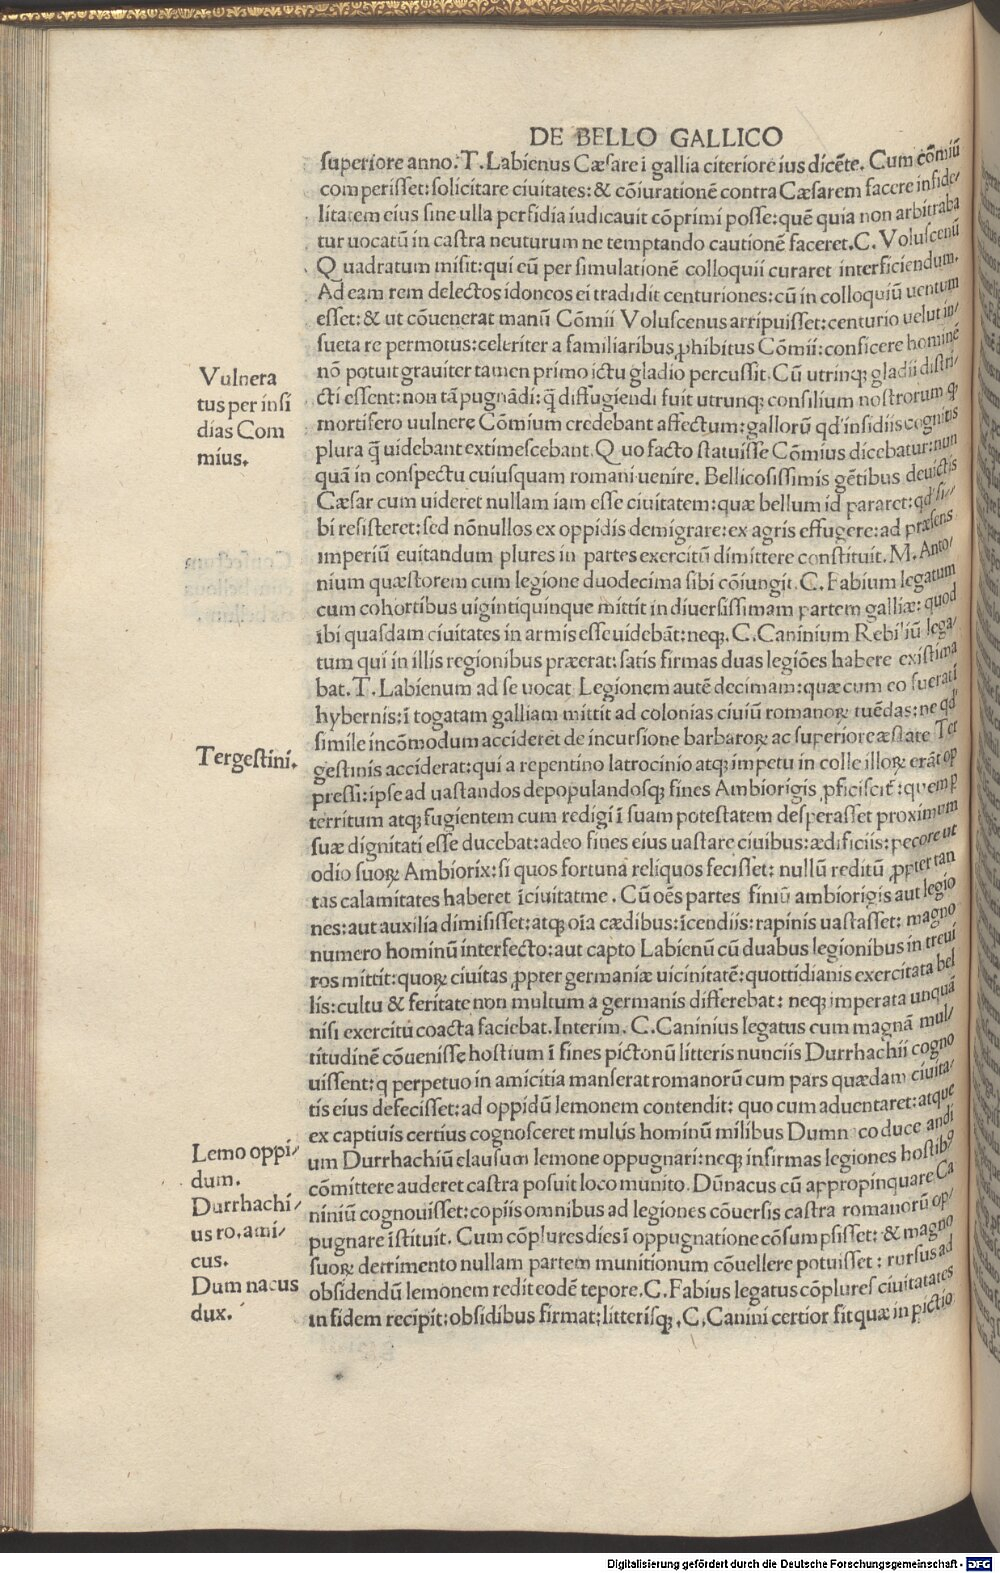 DE BELLO GALLICO
superiore anno: T. Labienus Cæsare i gallia citeriore ius dicẽte. Cum cõmiũ
comperisset: solicitare ciuitates: & cõiurationẽ contra Cæsarem facere infide/
litatem eius sine ulla perfidia iudicauit cõprimi posse: quẽ quia non arbitraba
tur uocatũ in castra neuturum ne temptando cautionẽ faceret. C. Voluscenũ
Quadratum misit: qui eũ per simulationẽ colloquii curaret interficiendum.
Ad eam rem delectos idoneos ei tradidit centuriones: cũ in colloquiũ uentum
esset: & ut cõuenerat manũ Cõmii Voluscenus arripuisset: centurio uelut in/
sueta re permotus: celeriter a familiaribus ꝓhibitus Cõmii: conficere hominẽ
nõ potuit grauiter tamen primo ictu gladio percussit. Cũ utrinqꝫ gladii distri/
cti essent: non tã pugnãdi: q̃ diffugiendi fuit utrunqꝫ consilium nostrorum ꝙ
mortifero uulnere Cõmium credebant affectum: gallorũ qd' insidiis cognitis
plura q̃ uidebant extimescebant. Quo facto statuisse Cõmius dicebatur: nun
quã in conspectu cuiusquam romani uenire. Bellicosissimis gẽtibus deuictis
Cæsar cum uideret nullam iam esse ciuitatem: quæ bellum id pararet: qd' si/
bi resisteret: sed nõnullos ex oppidis demigrare: ex agris effugere: ad præsens
imperiũ euitandum plures in partes exercitũ dimittere constituit. M. Anto/
nium quæstorem cum legione duodecima sibi cõiungit. C. Fabium legatum
cum cohortibus uigintiquinque mittit in diuersissimam partem galliæ: quod
ibi quasdam ciuitates in armis esse uidebãt: neqꝫ. C. Caninium Rebiliũ lega/
tum qui in illis regionibus præerat: satis firmas duas legiões habere existima
bat. T. Labienum ad se uocat Legionem autẽ decimam: quæ cum eo fuerat ĩ
hybernis: ĩ togatam galliam mittit ad colonias ciuiũ romanoꝝ tuẽdas: ne qd'
simile incõmodum accideret de incursione barbaroꝝ ac superiore æstate Ter
gestinis acciderat: qui a repentino latrocinio atqꝫ impetu in colle illoꝝ erãt op
pressi: ipse ad uastandos depopulandosqꝫ fines Ambiorigis ꝓficiscit̃: quem ꝑ
territum atqꝫ fugientem cum redigi ĩ suam potestatem desperasset proximum
suæ dignitati esse ducebat: adeo fines eius uastare ciuibus: ædificiis: pecore ut
odio suoꝝ Ambiorix: si quos fortuna reliquos fecisset: nullũ reditũ ꝓpter tan
tas calamitates haberet ĩciuitatme. Cũ oẽs partes finiũ ambiorigis aut legio
nes: aut auxilia dimisisset: atqꝫ oĩa cædibus: ĩcendiis: rapinis uastasset: magno
numero hominũ interfecto: aut capto Labienũ cũ duabus legionibus in treui
ros mittit: quoꝝ ciuitas ꝓpter germaniæ uicinitatẽ: quottidianis exercitata bel
lis: cultu & feritate non multum a germanis differebat: neqꝫ imperata unquã
nisi exercitu coacta faciebat. Interim. C. Caninius legatus cum magnã mul/
titudinẽ cõuenisse hostium ĩ fines pictonũ litteris nunciis Durrhachii cogno
uissent: q perpetuo in amicitia manserat romanorũ cum pars quædam ciuita/
tis eius defecisset: ad oppidũ lemonem contendit: quo cum aduentaret: atque
ex captiuis certius cognosceret multis hominũ milibus Dumnaco duce andi
um Durrhachiũ clausum lemone oppugnari: neqꝫ infirmas legiones hostibꝰ
cõmittere auderet castra posuit loco munito. Dũnacus cũ appropinquare Ca
niniũ cognouisset: copiis omnibus ad legiones cõuersis castra romanorũ op/
pugnare ĩstituit. Cum cõplures dies ĩ oppugnatione cõsumpsisset: & magno
suoꝝ detrimento nullam partem munitionum cõuellere potuisset: rursus ad
obsidendũ lemonem redit eodẽ tepore. C. Fabius legatus cõplures ciuitatates
in fidem recipit: obsidibus firmat: litterisqꝫ. C. Canini certior fit quæ in pictio
Vulnera
tus per insi
dias Com
mius.
Tergestini.
Lemo oppi/
dum.
Durrhachi/
us ro. ami/
cus.
Dumnacus
dux.
Digitalisierung gefördert durch die Deutsche Forschungsgemeinschaft - DFG